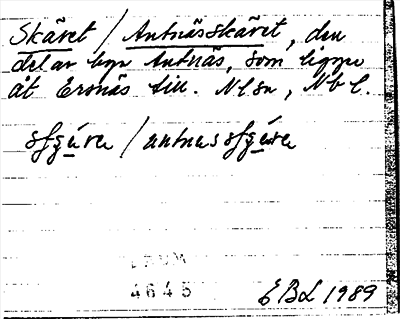 Skäret / Antnässkäret, den
del av byn Antnäs, som ligger
åt Ersnäs till. Nlsn, Nbl.
/
DAUM
4645
EBL 1989